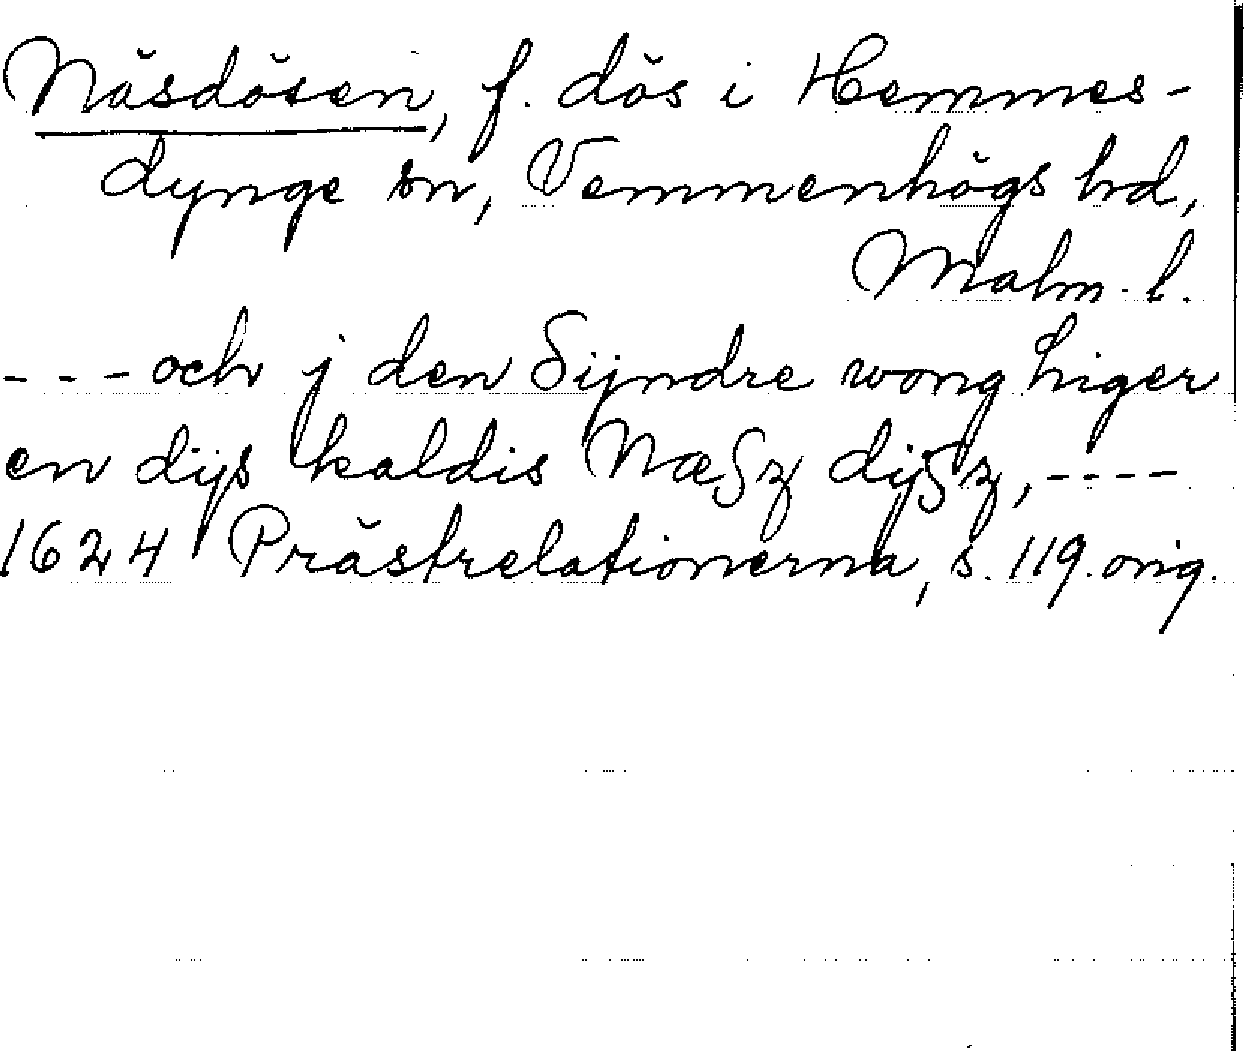 Näsdösen, f. dös i Hemmes-
dynge sn, Vemmenhögs hd,
Malm. l.
- - - och j den Sÿndre wong higer
en dijs kaldis Næßz dÿßz, - - - -
1624 Prästrelationerna, s. 119. orig.